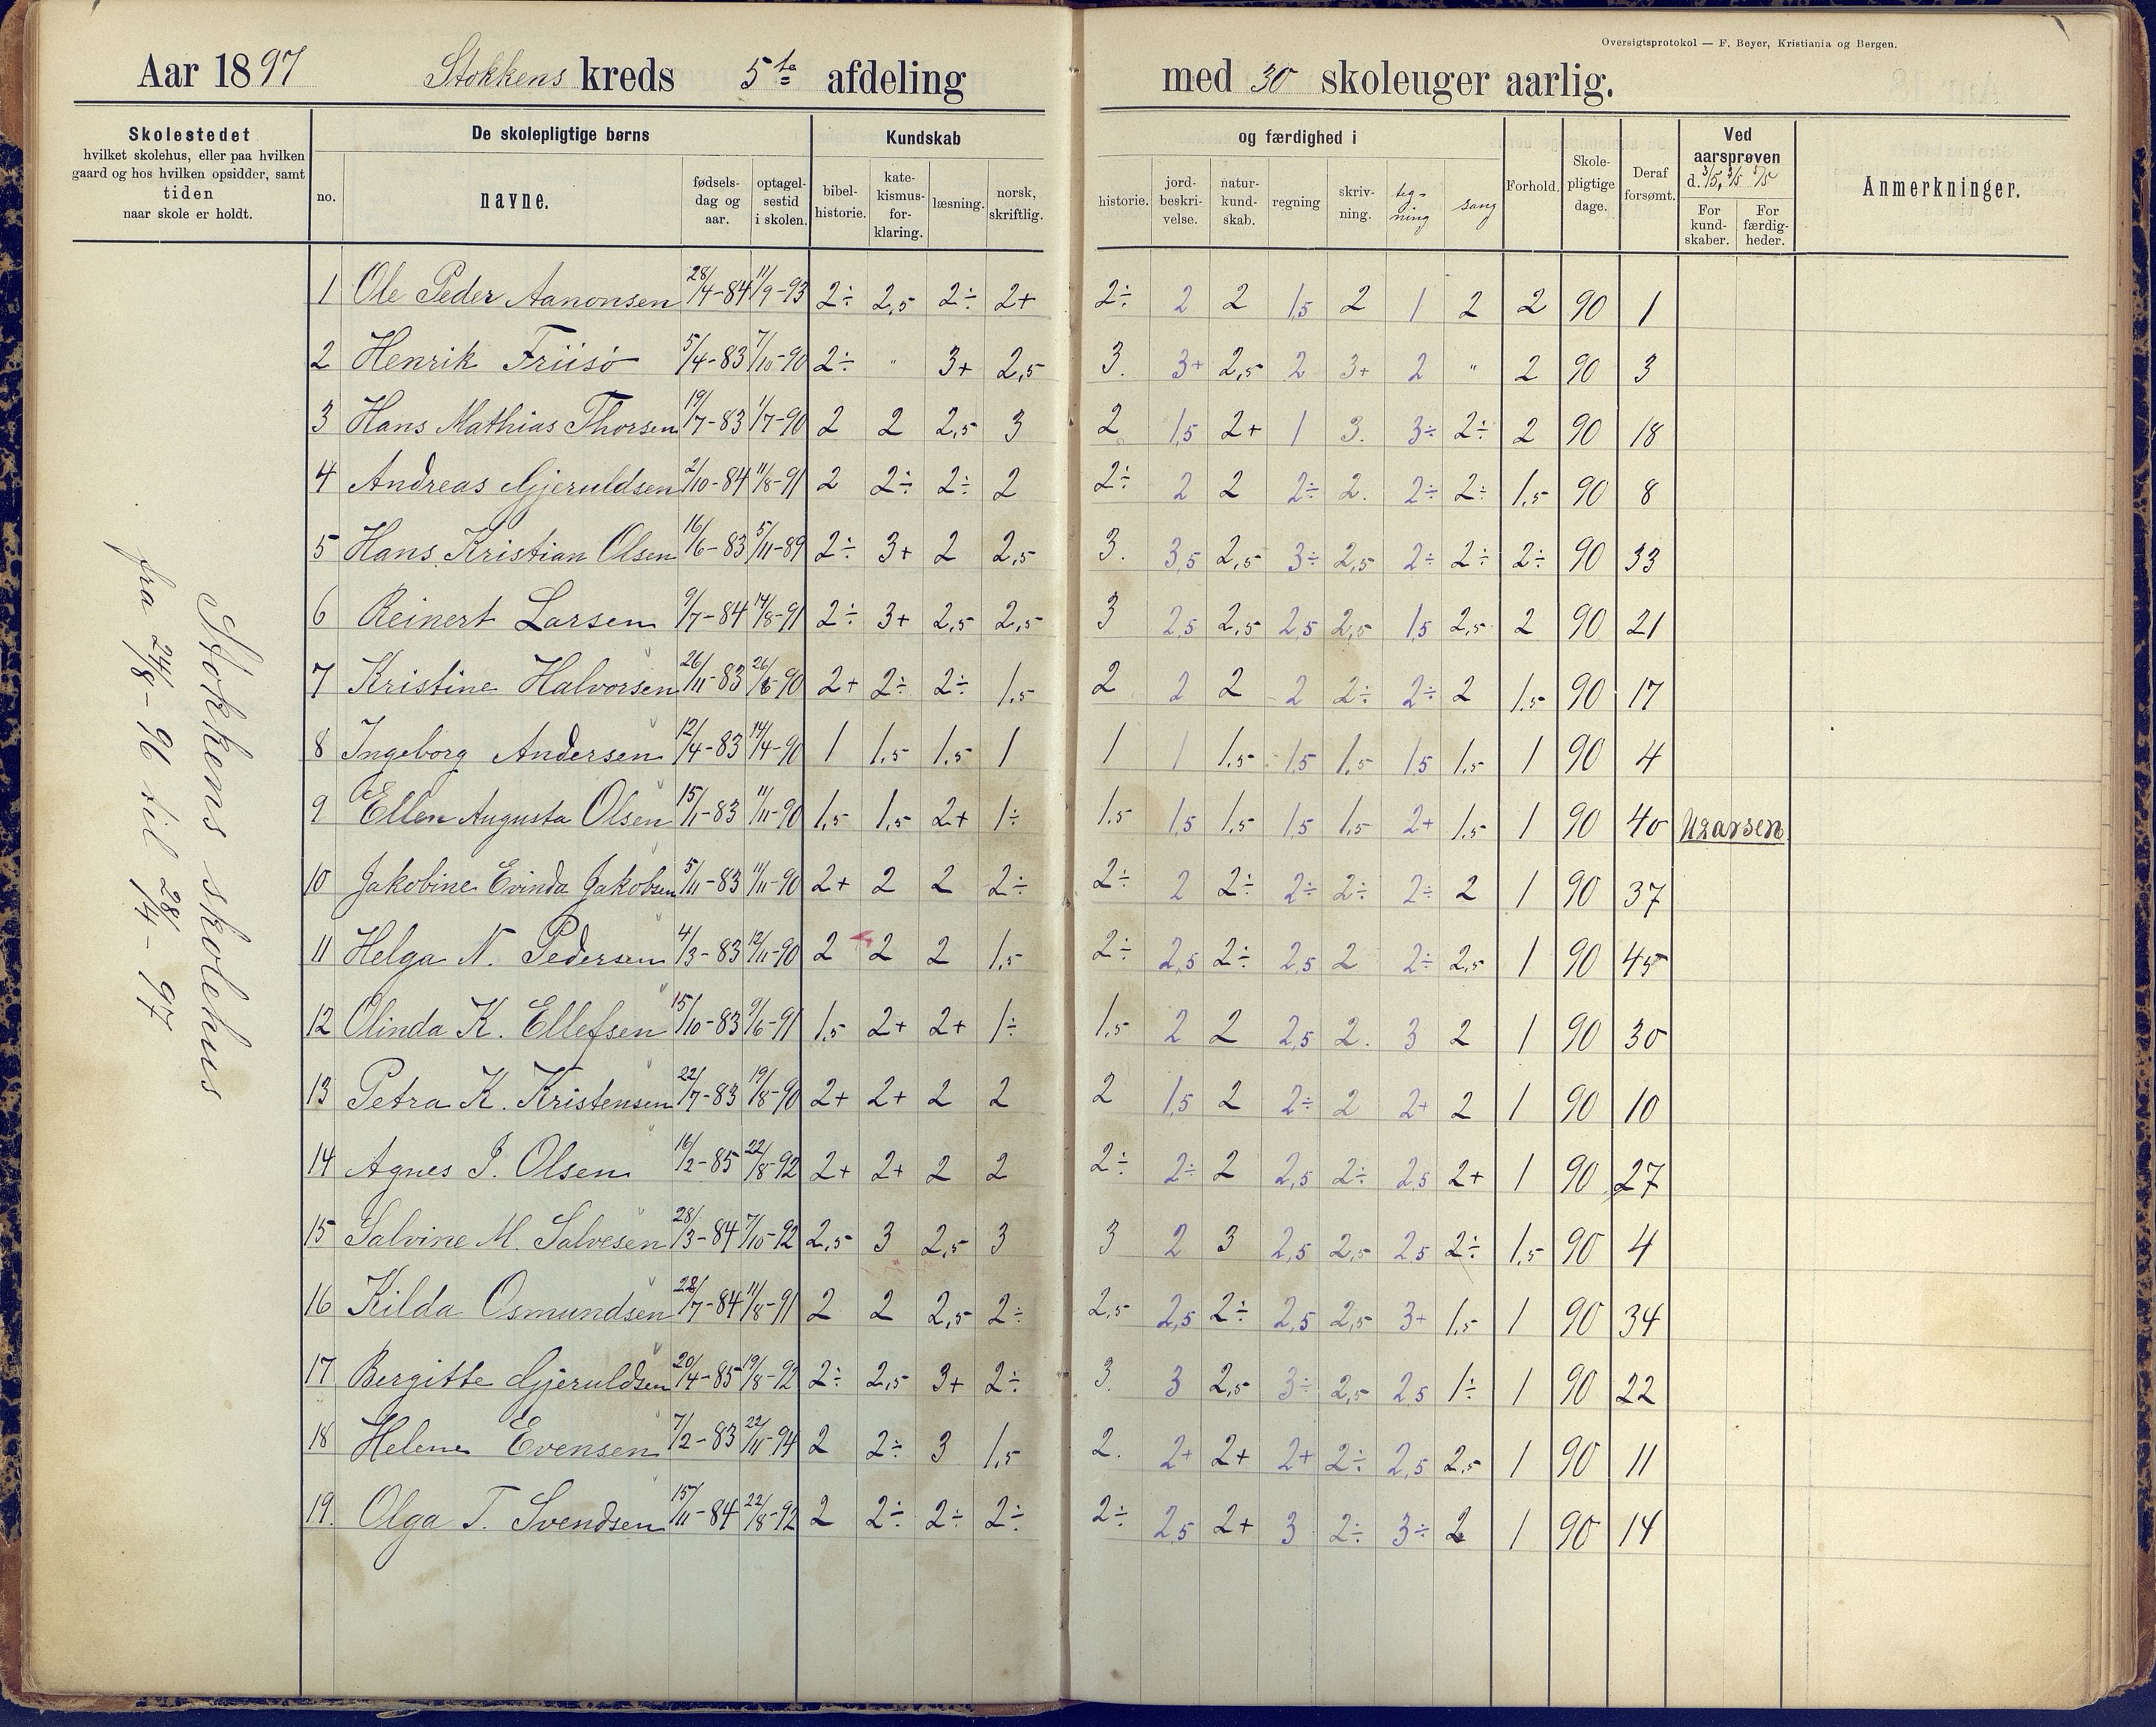 Oversigtsprotokol — F. Beyer, Kristiania og Bergen.
Aar 1897 Stokkens kreds 5te afdeling med 30 skoleuger aarlig.
Skolestedet
hvilket skolehus, eller paa hvilken
gaard og hos hvilken opsidder, samt
tiden
naar skole er holdt.
De skolepligtige børns
no. navne. fødsels-dag og aar. optagel-sestid i skolen.
Kundskab og færdighed i
bibel-historie. kate-kismus-for-klaring. læsning. norsk, skriftlig. historie. jord-beskri-velse. natur-kund-skab. regning skriv-ning. teg-ning sang
Forhold. Skole-pligtige dage. Deraf forsømt.
Ved aarsprøven d. 3/5, 4/5 5/5
For kund-skaber. For færdig-heder.
Anmerkninger.
Stokkens skolehus
fra 24/8 - 96 til 28/4 - 97
1 Ole Peder Aanonsen 28/4-84 11/9-93 2÷ 2,5 2÷ 2+ 2÷ 2 2 1,5 2 1 2 2 90 1
2 Henrik Friisö 5/4-83 7/10-90 2÷ " 3+ 2,5 3. 3+ 2,5 2 3+ 2 " 2 90 3
3 Hans Mathias Thorsen 19/7-83 1/7-90 2 2 2,5 3 2 1,5 2+ 1 3. 3÷ 2÷ 2 90 18
4 Andreas Gjeruldsen 2/10-84 11/8-91 2 2÷ 2÷ 2 2÷ 2 2 2÷ 2. 2÷ 2÷ 1,5 90 8
5 Hans Kristian Olsen 16/6-83 5/11-89 2÷ 3+ 2 2,5 3. 3,5 2,5 3÷ 2,5 2÷ 2÷ 2÷ 90 33
6 Reinert Larsen 9/7-84 14/8-91 2÷ 3+ 2,5 2,5 3 2,5 2,5 2,5 2,5 1,5 2,5 2 90 21
7 Kristine Halvorsen 26/11-83 26/6-90 2+ 2÷ 2÷ 1,5 2 2 2 2 2÷ 2÷ 2 1,5 90 17
8 Ingeborg Andersen 12/4-83 14/4-90 1 1,5 1,5 1 1 1 1,5 1,5 1,5 1,5 1,5 1 90 4
9 Ellen Augusta Olsen 15/1-83 11/11-90 1,5 1,5 2+ 1÷ 1,5 1,5 1,5 1,5 1,5 2+ 1,5 1 90 40
10 Jakobine Evinda Jakobsen 5/11-83 11/11-90 2+ 2 2 2÷ 2÷ 2 2÷ 2÷ 2÷ 2÷ 2 1 90 37
11 Helga N. Pedersen 4/3-83 12/11-90 2 2 2 1,5 2÷ 2,5 2÷ 2,5 2 2÷ 2,5 1 90 45
12 Olinda K. Ellefsen 15/10-83 9/6-91 1,5 2+ 2+ 1÷ 1,5 2 2 2,5 2. 3 2 1 90 30
13 Petra K. Kristensen 22/7-83 19/8-90 2+ 2+ 2 2 2 1,5 2 2÷ 2 2+ 2 1 90 10
14 Agnes J. Olsen 16/2-85 22/8-92 2+ 2+ 2 2 2÷ 2÷ 2 2,5 2÷ 2,5 2+ 1 90 27
15 Salvine M. Salvesen 28/3-84 7/10-92 2,5 3 2,5 3 3 2 3 2,5 2,5 2,5 2÷ 1,5 90 4
16 Kilda Osmundsen 28/7-84 11/8-91 2 2 2,5 2÷ 2,5 2,5 2÷ 2,5 2,5 3+ 1,5 1 90 34
17 Bergitte Gjeruldsen 20/4-85 19/8-92 2÷ 2,5 3+ 2÷ 3. 3 2,5 3÷ 2,5 2,5 1÷ 1 90 22
18 Helene Evensen 7/2-83 22/11-94 2 2÷ 3 1,5 2. 2+ 2+ 2+ 2÷ 2,5 2,5 1 90 11
19. Olga T. Svendsen 15/11-84 22/8-92 2 2÷ 2÷ 2÷ 2÷ 2,5 2+ 3 2÷ 3÷ 2 1 90 14